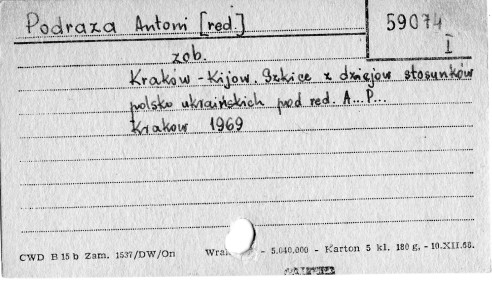 Podraza Antoni [red.]
59074
I
zob.
Kraków - Kijów. Szkice z dziejów stosunków
polsko ukraińskich pod red. A... P...
Kraków 1969
CWD B 15 b Zam. 1537/DW/On Wra - 5.040.000 - Karton 5 kl. 180 g. - 10.XII.68.